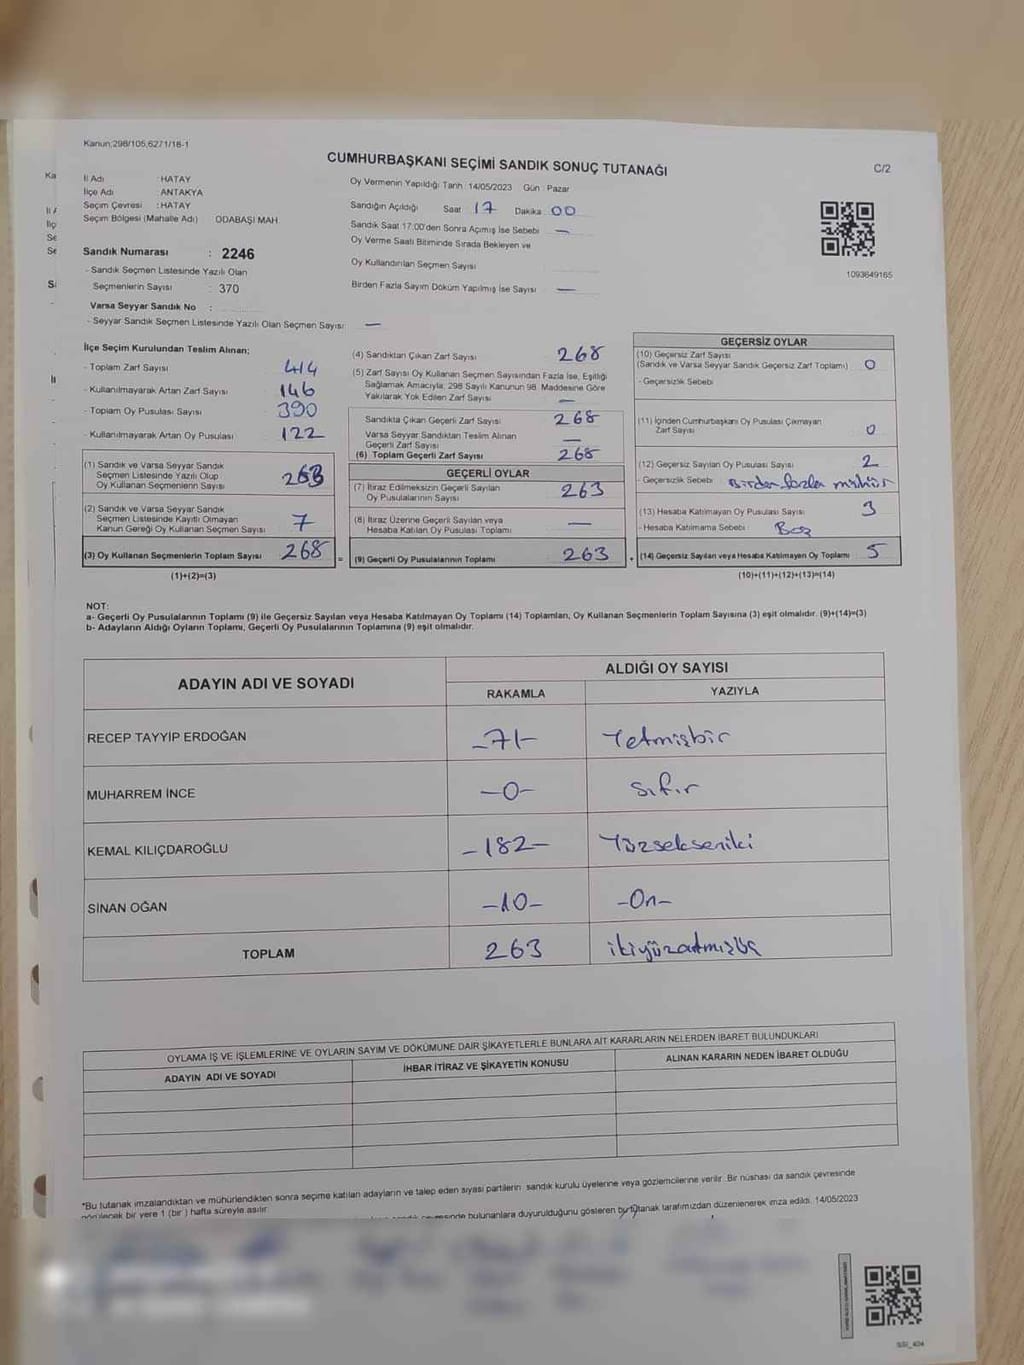 Kanun;298/105,6271/18-1
CUMHURBAŞKANI SEÇİMİ SANDIK SONUÇ TUTANAĞI
C/2
İl Adı : HATAY
İlçe Adı : ANTAKYA
Seçim Çevresi : HATAY
Seçim Bölgesi (Mahalle Adı) ODABAŞI MAH.
Sandık Numarası : 2246
- Sandık Seçmen Listesinde Yazılı Olan
Seçmenlerin Sayısı : 370
Varsa Seyyar Sandık No :
- Seyyar Sandık Seçmen Listesinde Yazılı Olan Seçmen Sayısı: —
Oy Vermenin Yapıldığı Tarih :14/05/2023 Gün : Pazar
Sandığın Açıldığı Saat : 17 Dakika : 00
Sandık Saat 17:00'den Sonra Açılmış İse Sebebi : —
Oy Verme Saati Bitiminde Sırada Bekleyen ve
Oy Kullandırılan Seçmen Sayısı
Birden Fazla Sayım Döküm Yapılmış İse Sayısı : —
1093649165
İlçe Seçim Kurulundan Teslim Alınan;
- Toplam Zarf Sayısı : 414
- Kullanılmayarak Artan Zarf Sayısı : 146
- Toplam Oy Pusulası Sayısı : 390
- Kullanılmayarak Artan Oy Pusulası : 122
(1) Sandık ve Varsa Seyyar Sandık
Seçmen Listesinde Yazılı Olup
Oy Kullanan Seçmenlerin Sayısı
(2) Sandık ve Varsa Seyyar Sandık
Seçmen Listesinde Kayıtlı Olmayan
Kanun Gereği Oy Kullanan Seçmen Sayısı 7
(3) Oy Kullanan Seçmenlerin Toplam Sayısı 268 =
(1)+(2)=(3)
(4) Sandıktan Çıkan Zarf Sayısı : 268
(5) Zarf Sayısı Oy Kullanan Seçmen Sayısından Fazla İse, Eşitliği
Sağlamak Amacıyla; 298 Sayılı Kanunun 98. Maddesine Göre
Yakılarak Yok Edilen Zarf Sayısı : —
Sandıkta Çıkan Geçerli Zarf Sayısı : 268
Varsa Seyyar Sandıktan Teslim Alınan
Geçerli Zarf Sayısı : —
(6) Toplam Geçerli Zarf Sayısı : 268
GEÇERLİ OYLAR
(7) İtiraz Edilmeksizin Geçerli Sayılan
Oy Pusulalarının Sayısı : 263
(8) İtiraz Üzerine Geçerli Sayılan veya
Hesaba Katılan Oy Pusulası Toplamı : —
(9) Geçerli Oy Pusulalarının Toplamı 263 +
GEÇERSİZ OYLAR
(10) Geçersiz Zarf Sayısı
(Sandık ve Varsa Seyyar Sandık Geçersiz Zarf Toplamı) : 0
- Geçersizlik Sebebi
(11) İçinden Cumhurbaşkanı Oy Pusulası Çıkmayan
Zarf Sayısı : 0
(12) Geçersiz Sayılan Oy Pusulası Sayısı : 2
- Geçersizlik Sebebi : Birden fazla mühür
(13) Hesaba Katılmayan Oy Pusulası Sayısı : 3
- Hesaba Katılmama Sebebi : Boş
(14) Geçersiz Sayılan veya Hesaba Katılmayan Oy Toplamı 5
(10)+(11)+(12)+(13)=(14)
NOT:
a- Geçerli Oy Pusulalarının Toplamı (9) ile Geçersiz Sayılan veya Hesaba Katılmayan Oy Toplamı (14) Toplamları, Oy Kullanan Seçmenlerin Toplam Sayısına (3) eşit olmalıdır. (9)+(14)=(3)
b- Adayların Aldığı Oyların Toplamı, Geçerli Oy Pusulalarının Toplamına (9) eşit olmalıdır.
ADAYIN ADI VE SOYADI
ALDIĞI OY SAYISI
RAKAMLA YAZIYLA
RECEP TAYYİP ERDOĞAN -71- Yetmişbir
MUHARREM İNCE -0- Sıfır
KEMAL KILIÇDAROĞLU -182- Yüzsekseniki
SİNAN OĞAN -10- -On-
TOPLAM 263 ikiyüzatmışüç
OYLAMA İŞ VE İŞLEMLERİNE VE OYLARIN SAYIM VE DÖKÜMÜNE DAİR ŞİKAYETLERLE BUNLARA AİT KARARLARIN NELERDEN İBARET BULUNDUKLARI
ADAYIN ADI VE SOYADI İHBAR İTİRAZ VE ŞİKAYETİN KONUSU ALINAN KARARIN NEDEN İBARET OLDUĞU
*Bu tutanak imzalandıktan ve mühürlendikten sonra seçime katılan adayların ve talep eden siyasi partilerin sandık kurulu üyelerine veya gözlemcilerine verilir. Bir nüshası da sandık çevresinde
görülecek bir yere 1 (bir) hafta süreyle asılır.
bulunanlara duyurulduğunu gösteren bu tutanak tarafımızdan düzenlenerek imza edildi. 14/05/2023